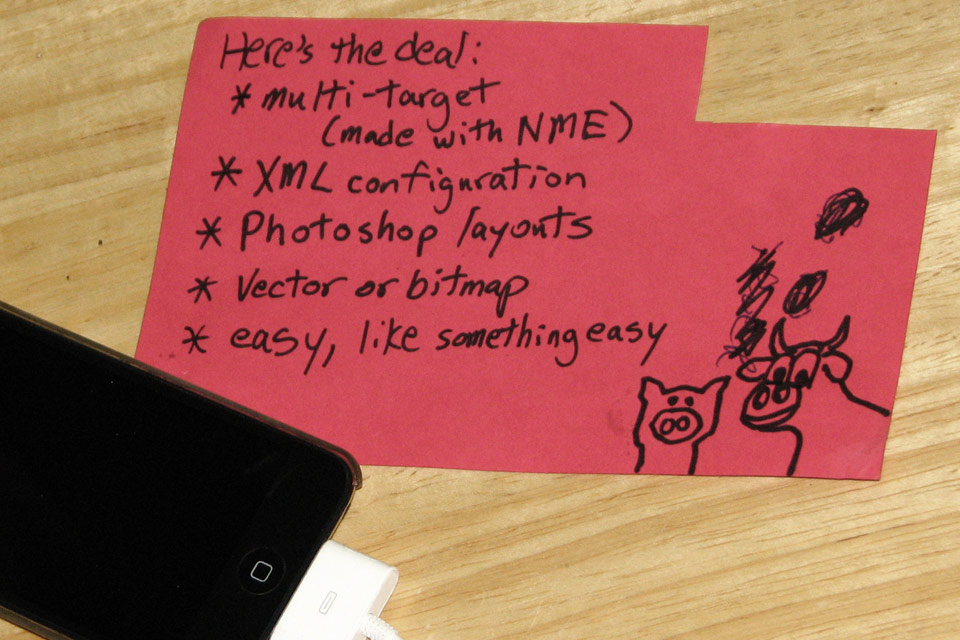 Here's the deal:
* multi-target
(made with NME)
* XML configuration
* Photoshop layouts
* Vector or bitmap
* easy, like something easy